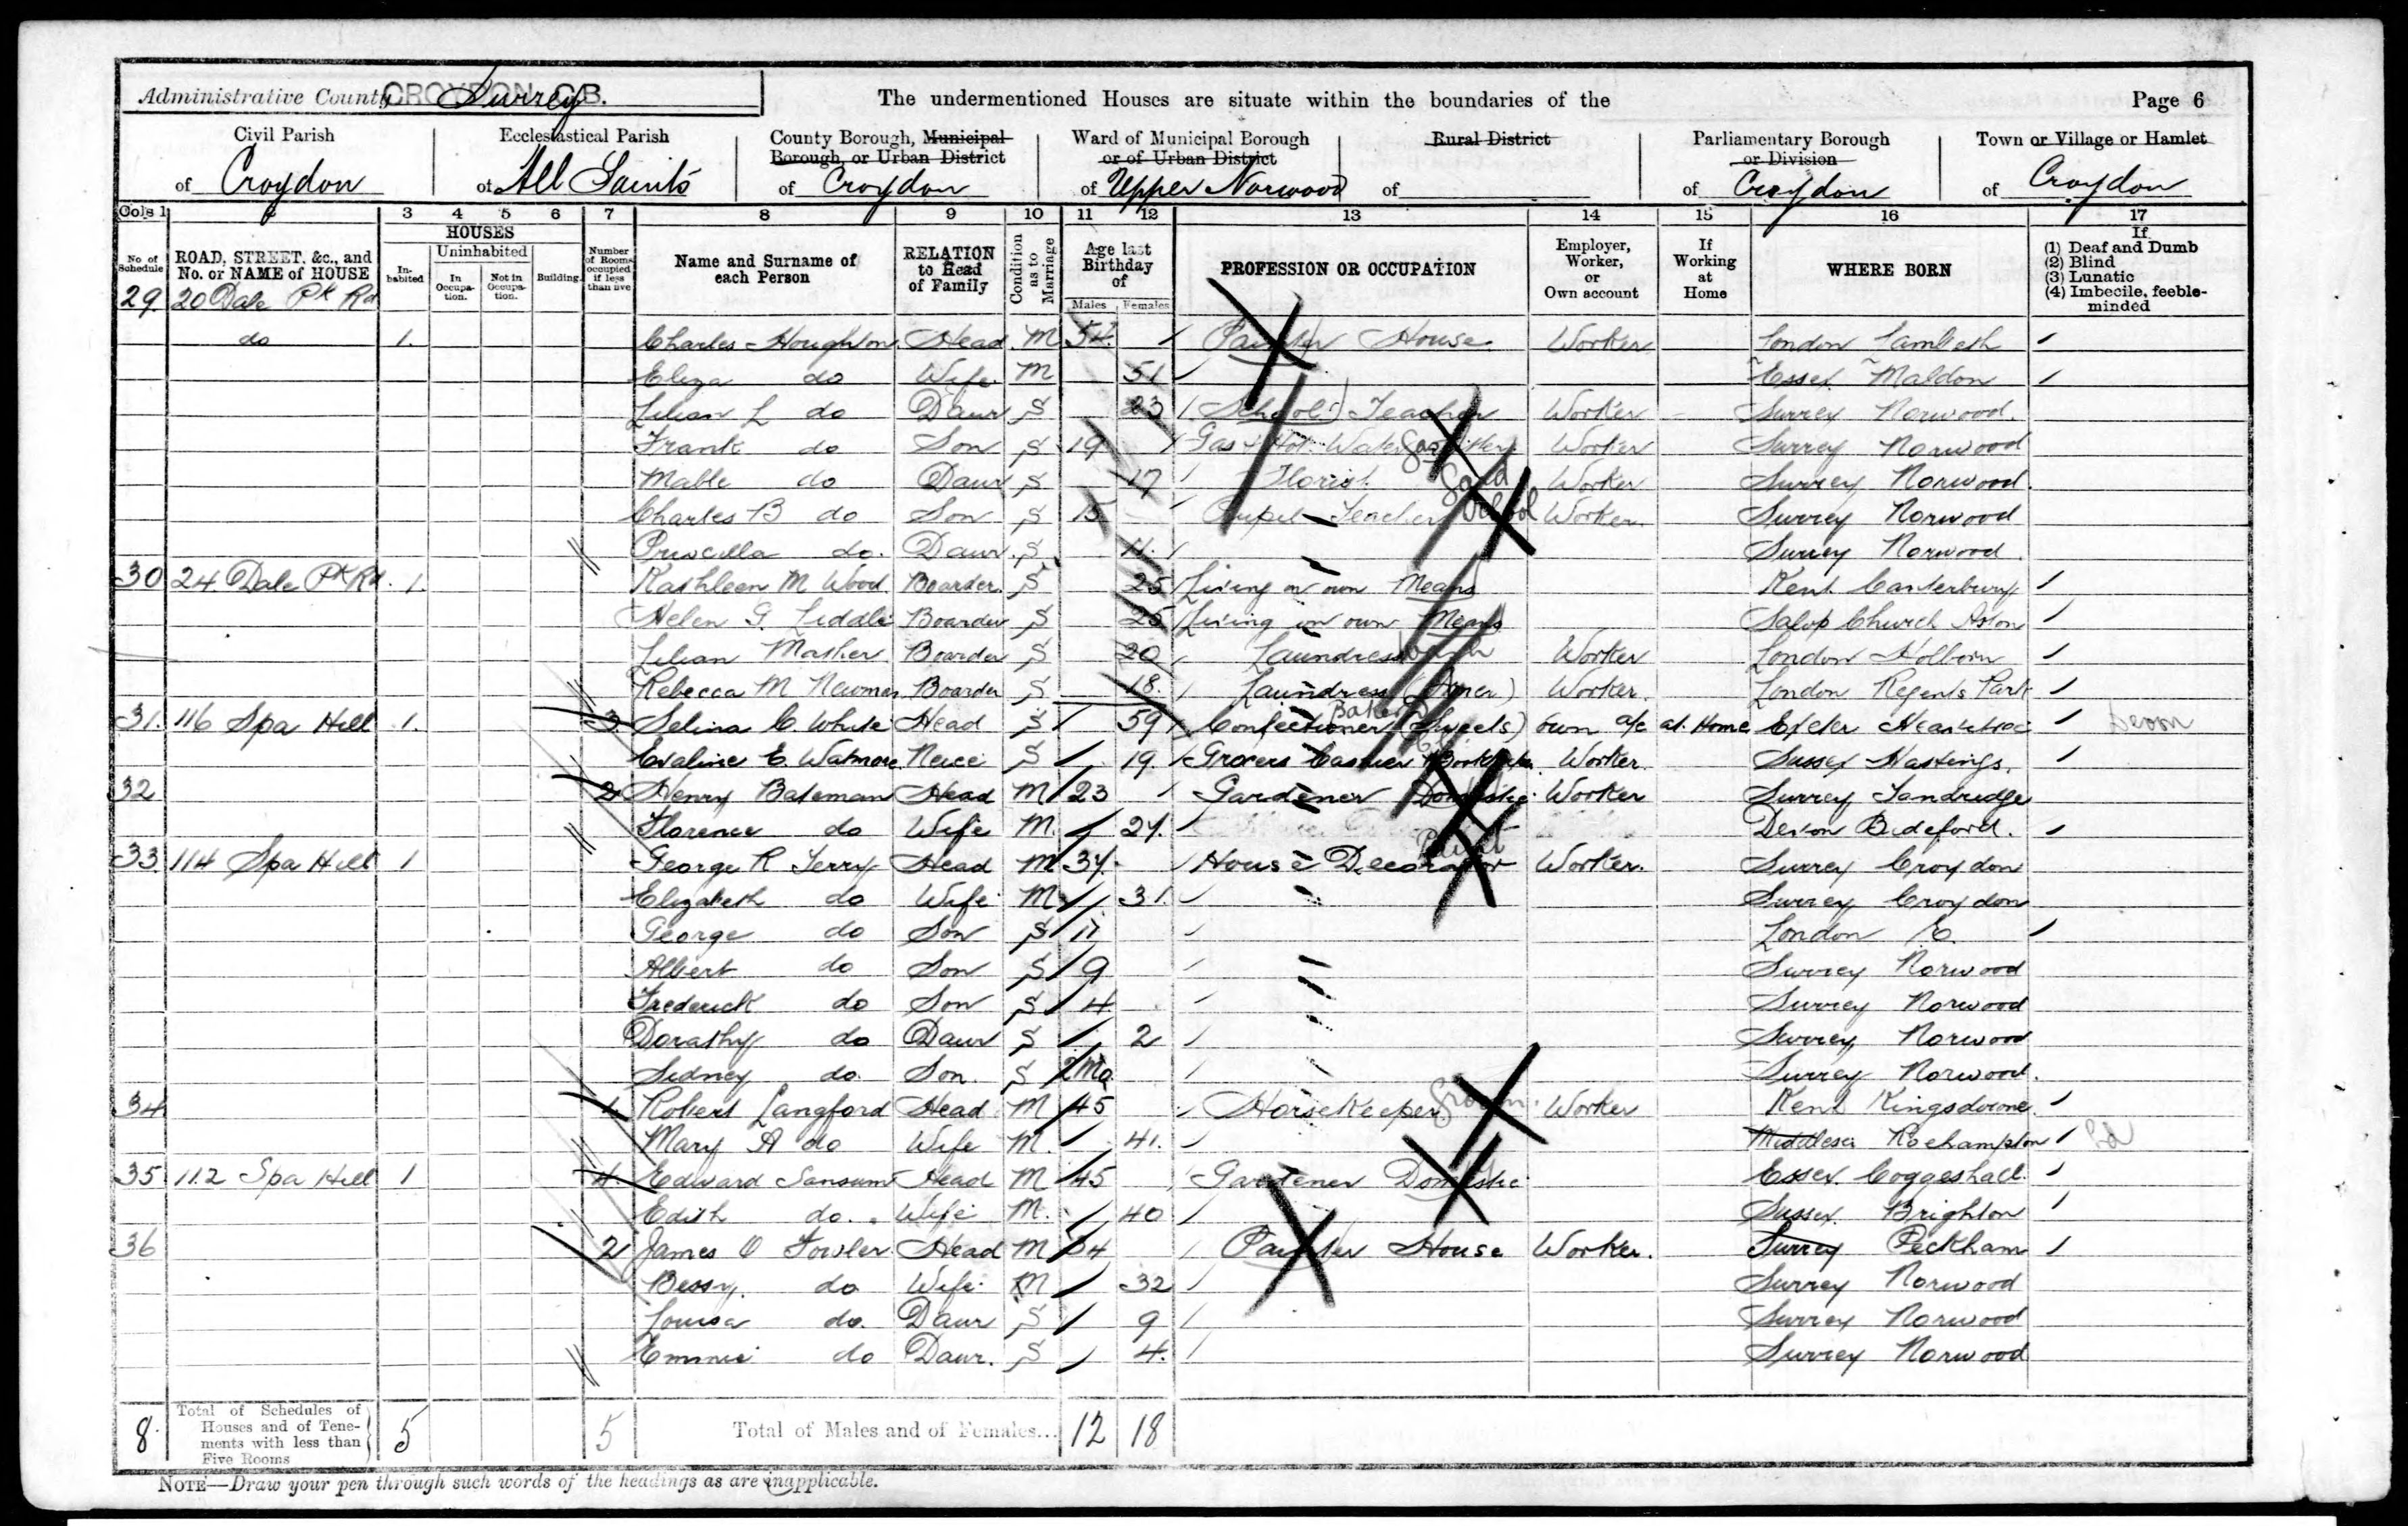 Administrative County CROYDON C.B. Surrey The undermentioned Houses are situate within the boundaries of the Page 6
Civil Parish of Croydon
Ecclesiastical Parish of All Saints
County Borough, Municipal Borough, or Urban District of Croydon
Ward of Municipal Borough or of Urban District of Upper Norwood
Rural District of
Parliamentary Borough or Division of Croydon
Town or Village or Hamlet of Croydon
Cols 1 2 3 4 5 6 7 8 9 10 11 12 13 14 15 16 17
No. of Schedule
ROAD, STREET, &c., and No. or NAME of HOUSE
HOUSES
Inhabited
Uninhabited
In Occupation.
Not in Occupation.
Building
Number of Rooms occupied if less than five
Name and Surname of each Person
RELATION to Head of Family
Condition as to Marriage
Age last Birthday of
Males Females
PROFESSION OR OCCUPATION
Employer, Worker, or Own account
If Working at Home
WHERE BORN
If (1) Deaf and Dumb (2) Blind (3) Lunatic (4) Imbecile, feeble-minded
29. 20 Dale Pk Rd
do 1. Charles Houghton Head M 54 Painter House Worker London Lambeth
Eliza do Wife M 51 Essex Maldon
Lilian L do Daur S 23 School Teacher Worker Surrey Norwood.
Frank do Son S 19 Gas & Hot Water Worker Surrey Norwood
Mable do Daur S 17 Florist Worker Surrey Norwood.
Charles B do Son S 15 Pupil Teacher School Worker Surrey Norwood
Priscilla do. Daur. S 11. Surrey Norwood.
30 24 Dale Pk Rd. 1. Kathleen M Wood. Boarder. S 25 Living on own Means Kent Canterbury
Helen G. Liddle Boarder S 25 Living on own Means Salop Church Aston
Lilian Mosher Boarder S 20 Laundress Worker London Holborn
Rebecca M Newman Boarder S 18. Laundress Worker. London Regents Park
31. 116 Spa Hill 1. 3 Selina C. White Head S 59 Confectioner (Sweets) Baker Own a/c at Home Exeter Devon
Evaline E. Neice S 19. Grocers Cashier Worker. Sussex Hastings.
32 2 Henry Bateman Head M 23 Gardener Domestic Worker Surrey Tandridge
Florence do Wife M. 27. Devon Bideford.
33. 114 Spa Hill 1 George R Terry Head M 37. House Decorator Worker. Surrey Croydon
Elizabeth do Wife M 31. Surrey Croydon
George do Son S 11 London E.
Albert do Son S 9 Surrey Norwood
Frederick do Son S 4 Surrey Norwood
Dorathy do Daur S 2 Surrey Norwood
Sidney do. Son. S 2 Mo Surrey Norwood.
34 Robert Langford Head M 45 Horsekeeper Groom Worker Kent Kingsdowne.
Mary A do Wife M. 41. Middlesex Roehampton
35 112 Spa Hill 1 4 Edward Sansum Head M 45 Gardener Domestic Essex Coggeshall.
Edith do. Wife M. 40. Sussex. Brighton
36 2 James O Fowler Head M 34 Painter House Worker. Surrey Peckham
Bessy. do Wife M 32 Surrey Norwood
Louisa do. Daur S 9 Surrey Norwood
Emmie do Daur. S 4. Surrey Norwood
8 Total of Schedules of Houses and of Tenements with less than Five Rooms 5 5 Total of Males and of Females... 12 18
NOTE—Draw your pen through such words of the headings as are inapplicable.